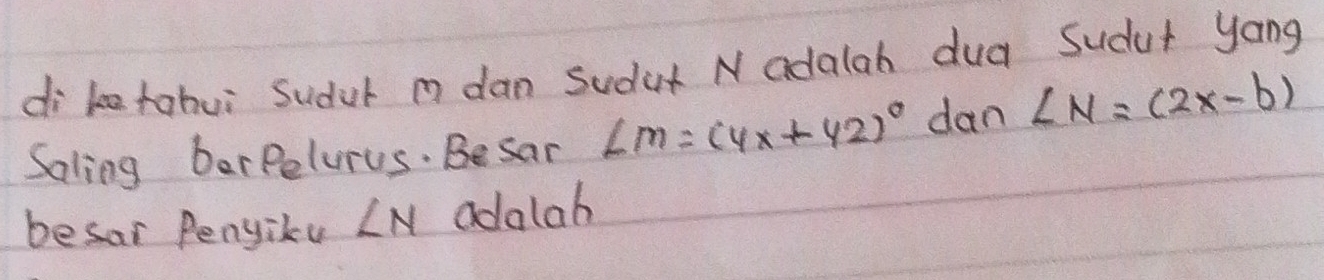 di ketahui sudut m dan sudut N adalah dua sudut yang
Saling berpelurus. Besar ∠m = (4x + 42)° dan ∠N = (2x - b)
besar Penyiku ∠N adalah